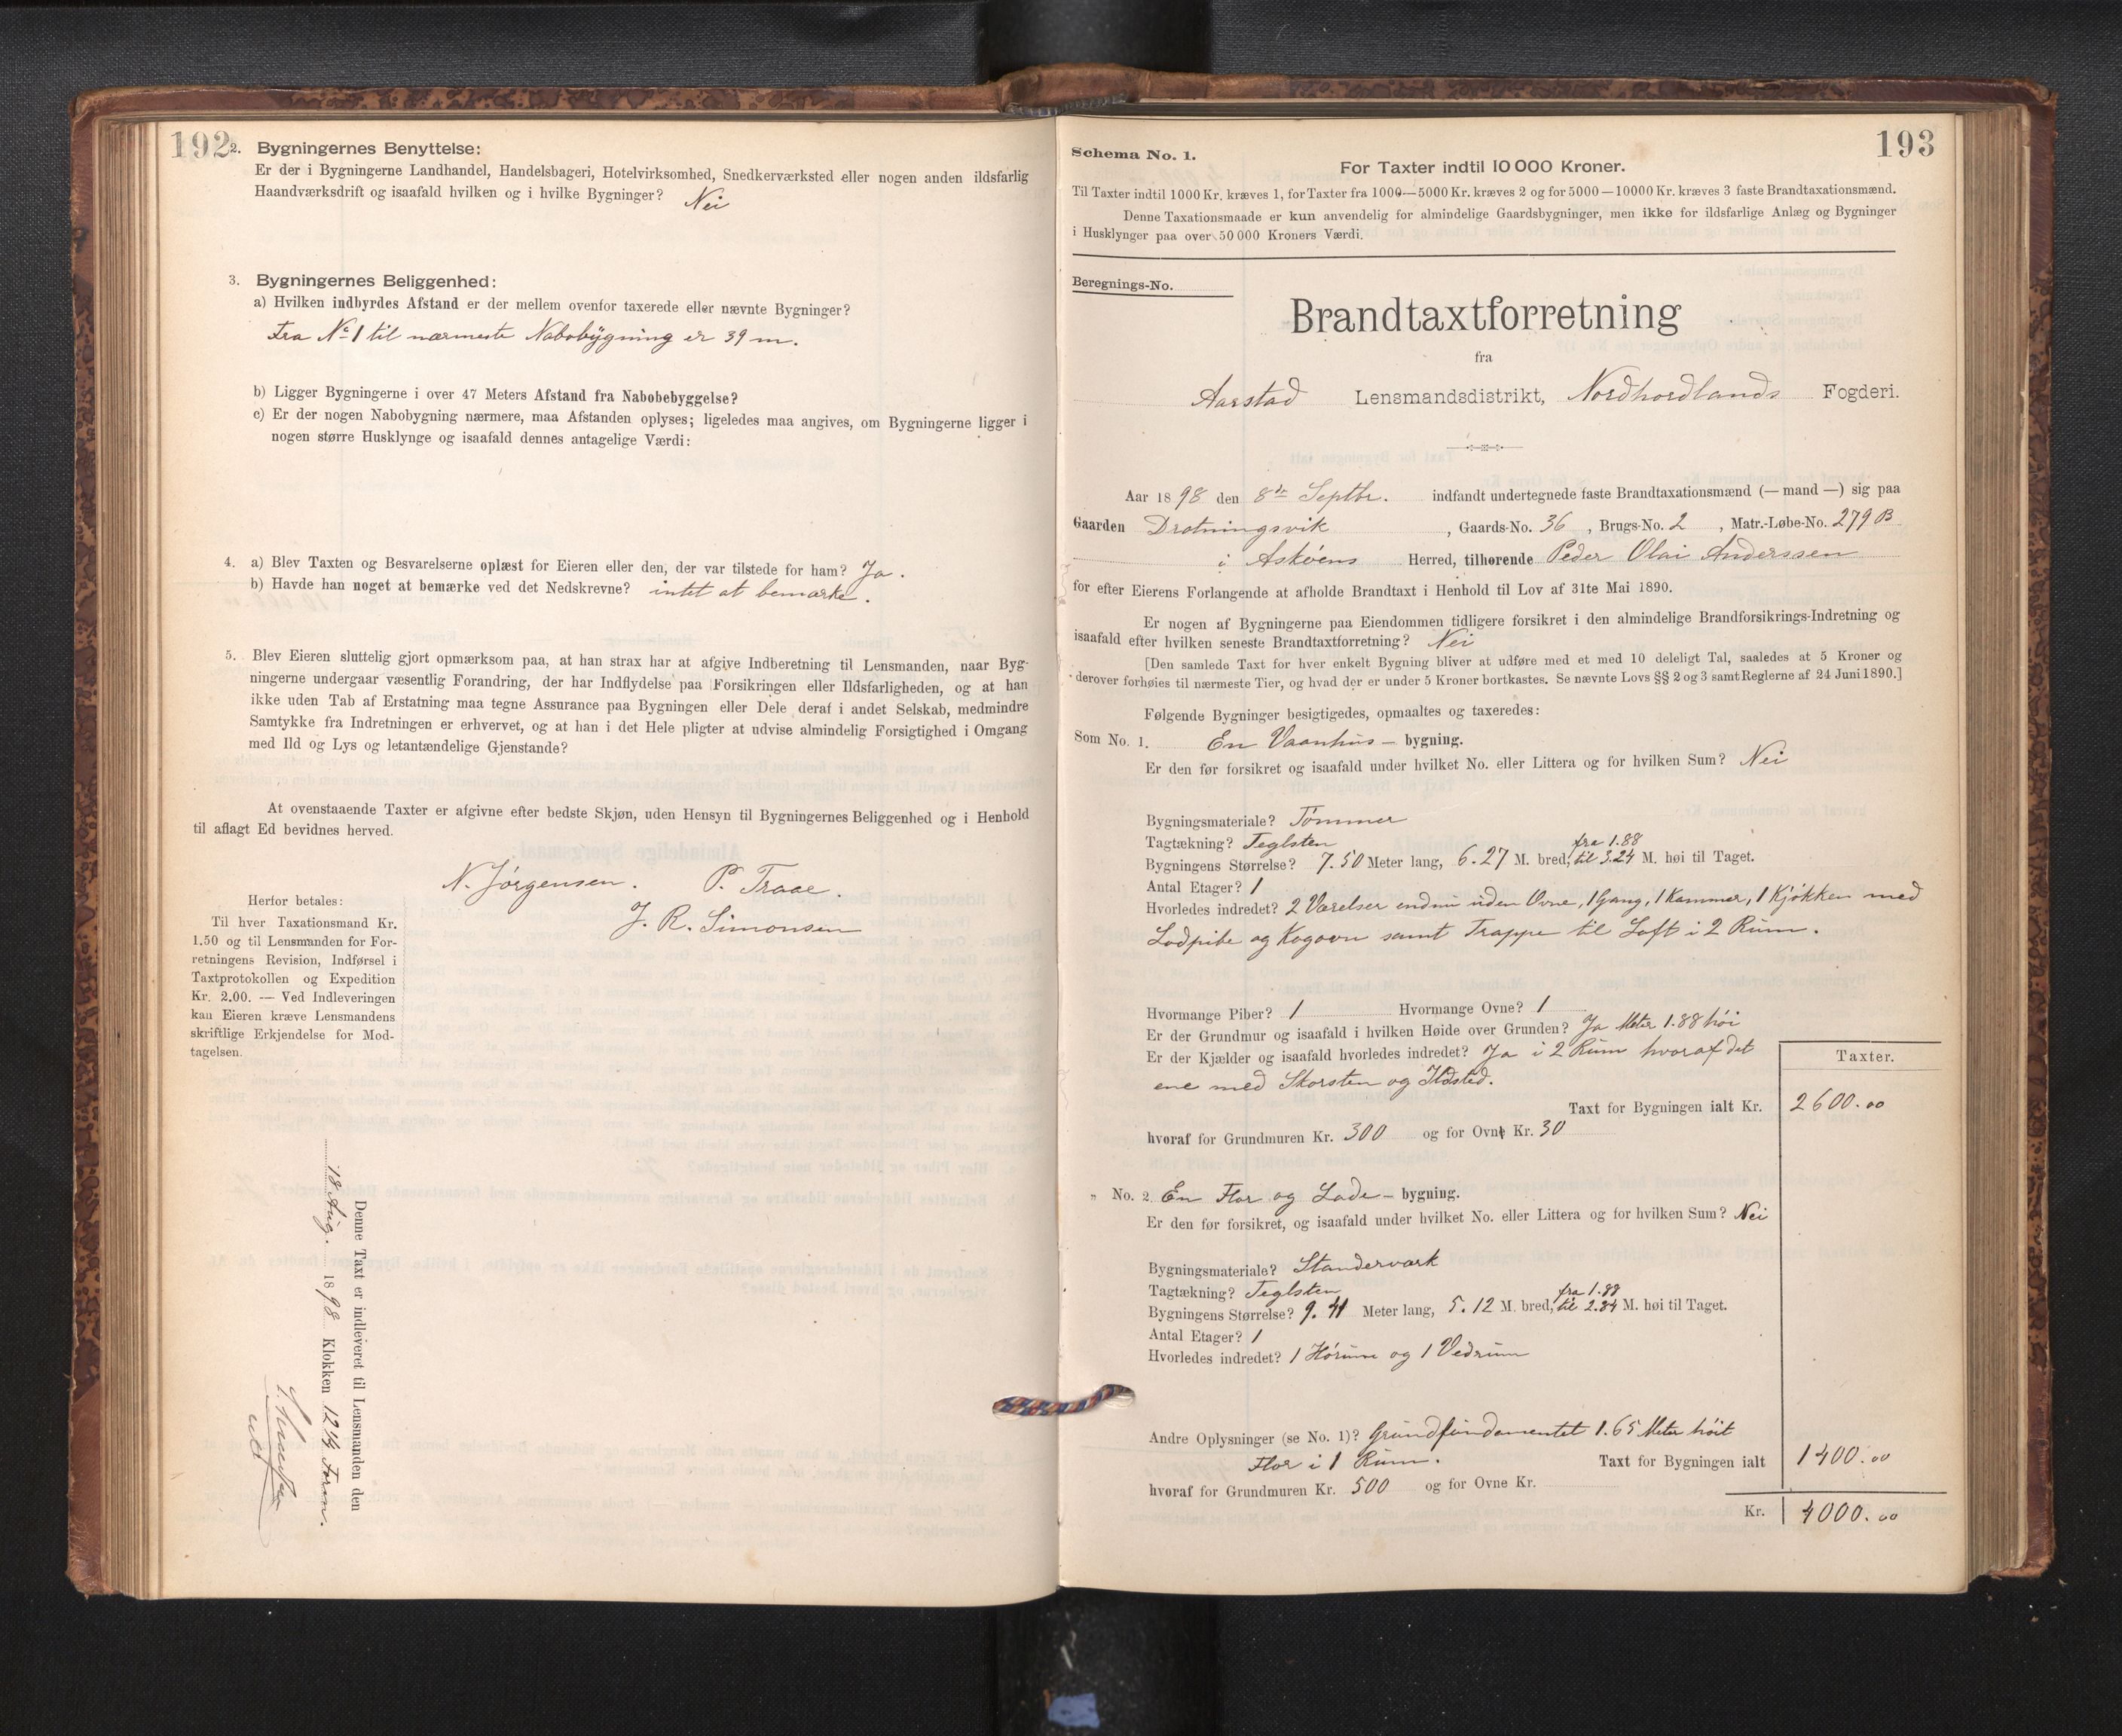 192
2. Bygningernes Benyttelse:
Er der i Bygningerne Landhandel, Handelsbageri, Hotelvirksomhed, Snedkerværksted eller nogen anden ildsfarlig
Haandværksdrift og isaafald hvilken og i hvilke Bygninger? Nei
3. Bygningernes Beliggenhed:
a) Hvilken indbyrdes Afstand er der mellem ovenfor taxerede eller nævnte Bygninger?
Fra No 1 til nærmeste Nabobygning er 39 m.
b) Ligger Bygningerne i over 47 Meters Afstand fra Nabobebyggelse?
c) Er der nogen Nabobygning nærmere, maa Afstanden oplyses; ligeledes maa angives, om Bygningerne ligger i
nogen større Husklynge og isaafald dennes antagelige Værdi:
4. a) Blev Taxten og Besvarelserne oplæst for Eieren eller den, der var tilstede for ham? Ja.
b) Havde han noget at bemærke ved det Nedskrevne? intet at bemærke.
5. Blev Eieren sluttelig gjort opmærksom paa, at han strax har at afgive Indberetning til Lensmanden, naar Byg-
ningerne undergaar væsentlig Forandring, der har Indflydelse paa Forsikringen eller Ildsfarligheden, og at han
ikke uden Tab af Erstatning maa tegne Assurance paa Bygningen eller Dele deraf i andet Selskab, medmindre
Samtykke fra Indretningen er erhvervet, og at han i det Hele pligter at udvise almindelig Forsigtighed i Omgang
med Ild og Lys og letantændelige Gjenstande?
At ovenstaaende Taxter er afgivne efter bedste Skjøn, uden Hensyn til Bygningernes Beliggenhed og i Henhold
til aflagt Ed bevidnes herved.
N. Jørgensen. P. Traae.
J. R. Simonsen
Herfor betales:
Til hver Taxationsmand Kr.
1.50 og til Lensmanden for For-
retningens Revision, Indførsel i
Taxtprotokollen og Expedition
Kr. 2.00. — Ved Indleveringen
kan Eieren kræve Lensmandens
skriftlige Erkjendelse for Mod-
tagelsen.
Denne Taxt er indleveret til Lensmanden den
18 Aug. 1898 Klokken 12 1/4 Form.
193
Schema No. 1.
For Taxter indtil 10 000 Kroner.
Til Taxter indtil 1000 Kr. kræves 1, for Taxter fra 1000—5000 Kr. kræves 2 og for 5000—10000 Kr. kræves 3 faste Brandtaxationsmænd.
Denne Taxationsmaade er kun anvendelig for almindelige Gaardsbygninger, men ikke for ildsfarlige Anlæg og Bygninger
i Husklynger paa over 50 000 Kroners Værdi.
Beregnings-No.
Brandtaxtforretning
fra
Aarstad Lensmandsdistrikt, Nordhordlands Fogderi.
Aar 1898 den 8de Septbr. indfandt undertegnede faste Brandtaxationsmænd (— mand —) sig paa
Gaarden Drotningsvik, Gaards-No. 36, Brugs-No. 2, Matr.-Løbe-No. 279 B
i Askøens Herred, tilhørende Peder Olai Anderssen
for efter Eierens Forlangende at afholde Brandtaxt i Henhold til Lov af 31te Mai 1890.
Er nogen af Bygningerne paa Eiendommen tidligere forsikret i den almindelige Brandforsikrings-Indretning og
isaafald efter hvilken seneste Brandtaxtforretning? Nei
[Den samlede Taxt for hver enkelt Bygning bliver at udføre med et med 10 deleligt Tal, saaledes at 5 Kroner og
derover forhøies til nærmeste Tier, og hvad der er under 5 Kroner bortkastes. Se nævnte Lovs §§ 2 og 3 samt Reglerne af 24 Juni 1890.]
Følgende Bygninger besigtigedes, opmaaltes og taxeredes:
Som No. 1. En Vaanhus — bygning.
Er den før forsikret og isaafald under hvilket No. eller Littera og for hvilken Sum? Nei
Bygningsmateriale? Tømmer
Tagtækning? Teglsten
Bygningens Størrelse? 7.50 Meter lang, 6.27 M. bred, fra 1.88 til 3.24 M. høi til Taget.
Antal Etager? 1
Hvorledes indredet? 2 Værelser endnu uden Ovne, 1 Gang, 1 Kammer, 1 Kjøkken med
Lodpibe og Kogovn samt Trappe til Loft i 2 Rum.
Hvormange Piber? 1 Hvormange Ovne? 1
Er der Grundmur og isaafald i hvilken Høide over Grunden? Ja Meter 1.88 høi
Er der Kjælder og isaafald hvorledes indredet? Ja i 2 Rum hvoraf det
ene med Skorsten og Ildsted.
Taxter.
Taxt for Bygningen ialt Kr. 2600.00
hvoraf for Grundmuren Kr. 300 og for Ovne Kr. 30
„ No. 2. En Flor og Lade — bygning.
Er den før forsikret, og isaafald under hvilket No. eller Littera og for hvilken Sum? Nei
Bygningsmateriale? Standerværk
Tagtækning? Teglsten
Bygningens Størrelse? 9.41 Meter lang, 5.12 M. bred, fra 1.88 til 2.84 M. høi til Taget.
Antal Etager? 1
Hvorledes indredet? 1 Hørum og 1 Vedrum
Andre Oplysninger (se No. 1)? Grundfundamentet 1.65 Meter høit
Flor i 1 Rum. Taxt for Bygningen ialt 1400.00
hvoraf for Grundmuren Kr. 500 og for Ovne Kr.
Kr. 4000.00